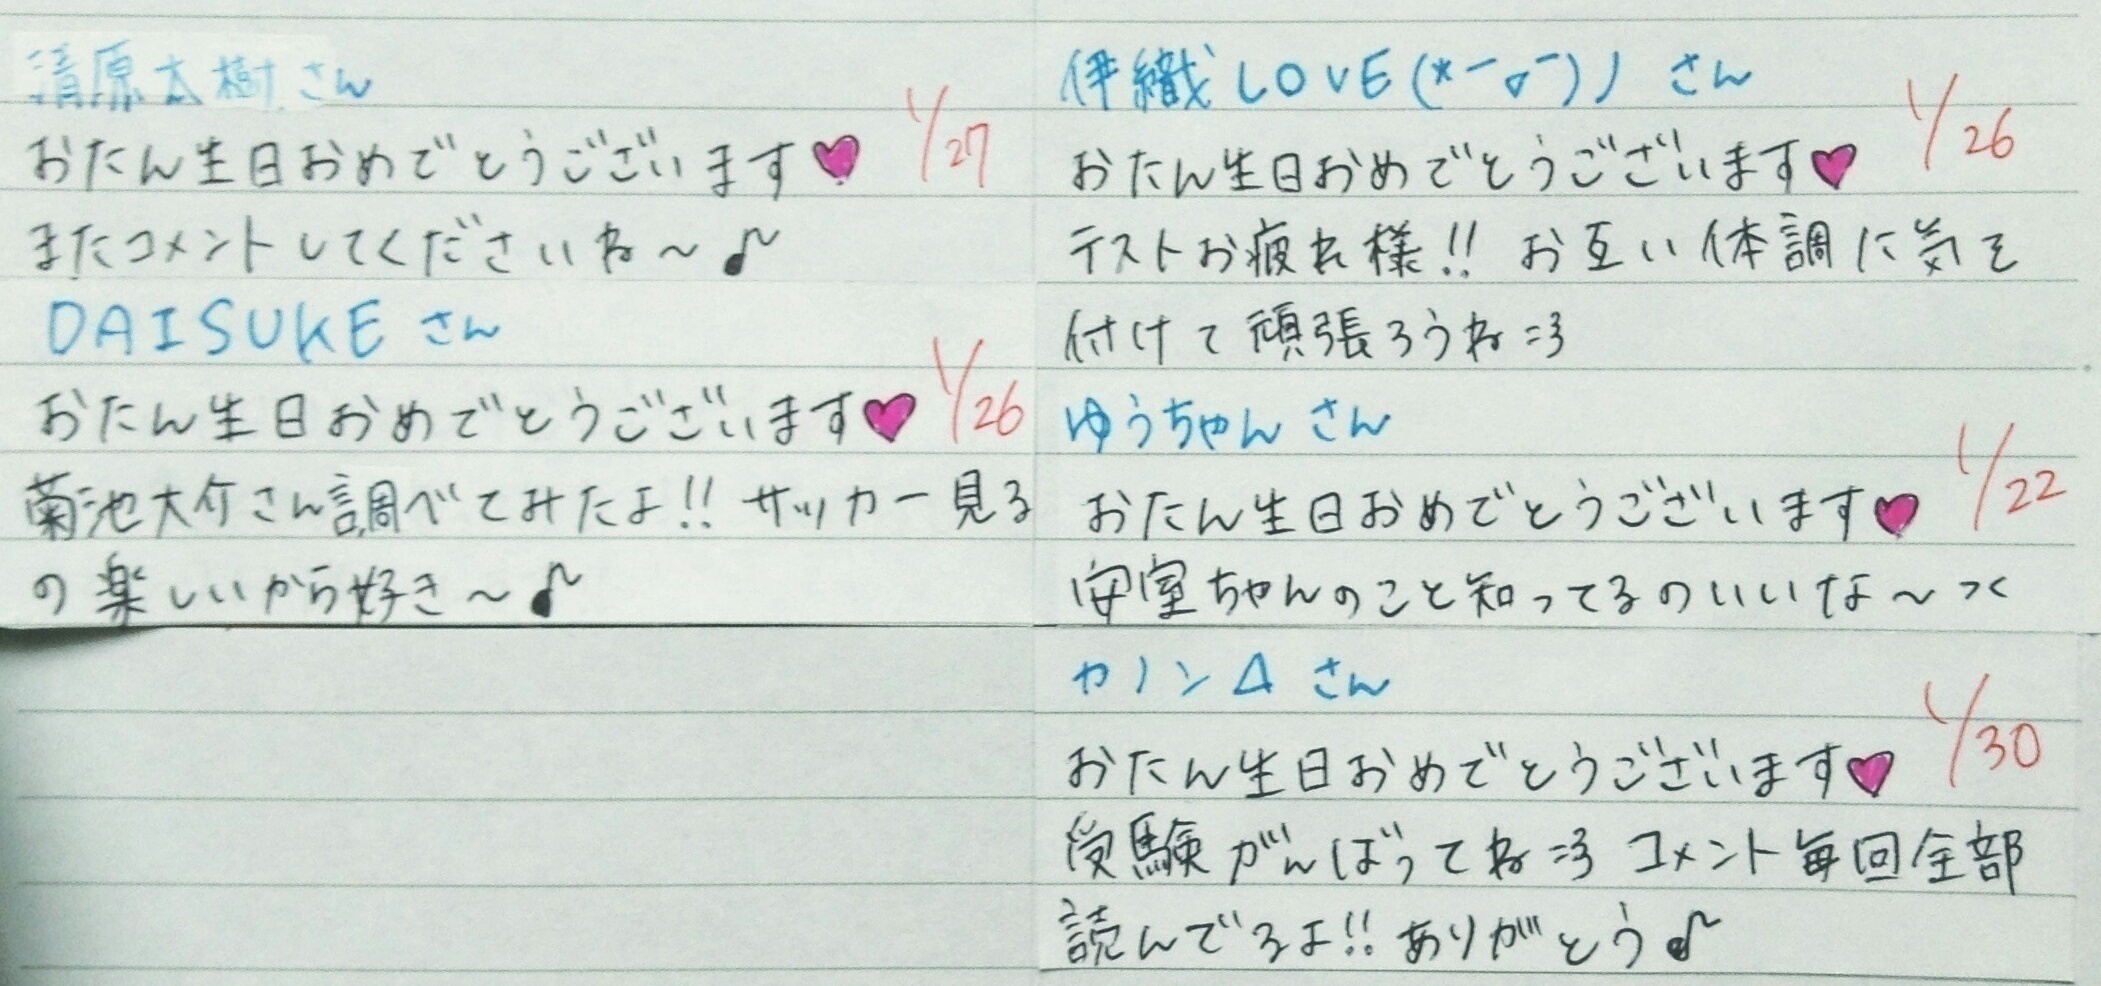 清原太樹さん
おたん生日おめでとうございます♥ 1/27
またコメントしてくださいね～♪
DAISUKEさん
おたん生日おめでとうございます♥ 1/26
菊池大介さん調べてみたよ!! サッカー見る
の楽しいから好き～♪
伊織LOVE(*¯σ¯)ノ さん
おたん生日おめでとうございます♥ 1/26
テストお疲れ様!! お互い体調に気を
付けて頑張ろうね=3
ゆうちゃんさん
おたん生日おめでとうございます♥ 1/22
安室ちゃんのこと知ってるのいいな～><
カノンΔさん
おたん生日おめでとうございます♥ 1/30
受験がんばってね=3 コメント毎回全部
読んでるよ!! ありがとう♪